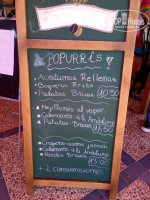 TOP HOTELS
POPURRIS
Aceitunas Rellenas
Boqueron Frito
Patatas Bravas 10'50
Mejillones al vapor
Calamares a la Andaluza
Patatas Bravas
Croqueta casera jamón
Calamares a la Andaluza
Patatas Bravas
+ 2 consumiciones